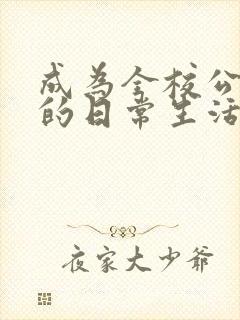 成為全校公
的日常生活
夜家大少爺